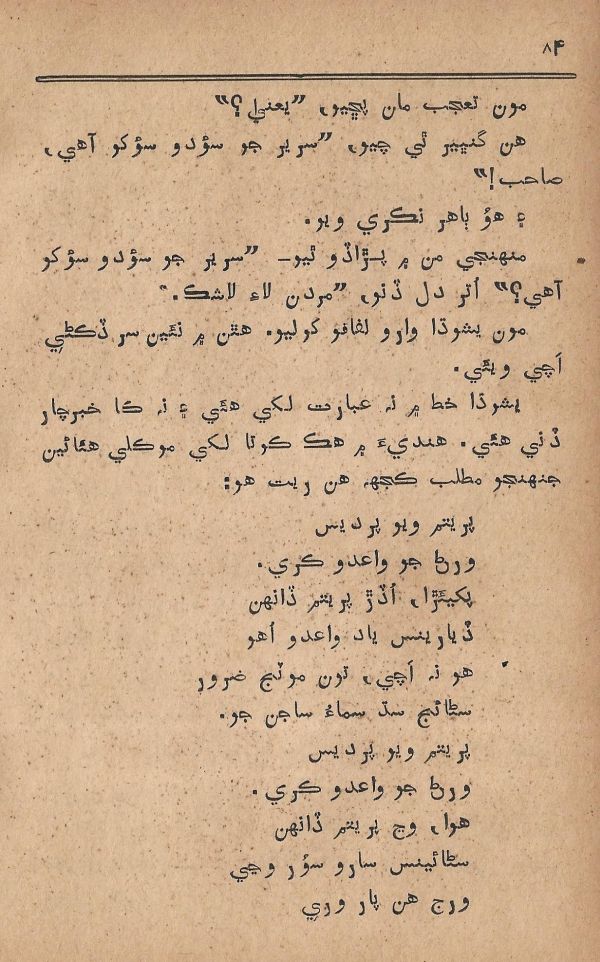 ۸۴
مون تعجب مان پڇيو، ”يعني؟“
هن گنڀير ٿي چيو، ”سرير جو سؤدو سؤکو آهي،
صاحب!“
۽ هوُ ٻاهر نڪري ويو.
منهنجي من ۾ پڙاڏو ٿيو- ”سرير جو سؤدو سؤکو
آهي؟“ اُتر دل ڏنو، ”مردن لاءِ لاشڪ.“
مون يشوڌا وارو لفافو کوليو. هٿن ۾ نئين سر ڏڪڻي
اَچي ويئي.
يشوڌا خط ۾ نہ عبارت لکي هئي ۽ نہ ڪا خبرچار
ڏني هئي. هنديءَ ۾ هڪ ڪوتا لکي موڪلي هئائين
جنهنجو مطلب ڪجهہ هن ريت هو:
پريتم ويو پرديس
ورڻ جو واعدو ڪري.
پکيئڙا، اُڏڙ پريتم ڏانهن
ڏيارينس ياد واعدو اُهو
هو نہ اَچي، تون موٽج ضرور
سڻائج سڌ سماءُ ساجن جو.
پريتم ويو پرديس
ورڻ جو واعدو ڪري.
هوا، وڃ پريتم ڏانهن
سڻائينس سارو سوُر وڃي
ورج هن پار وري